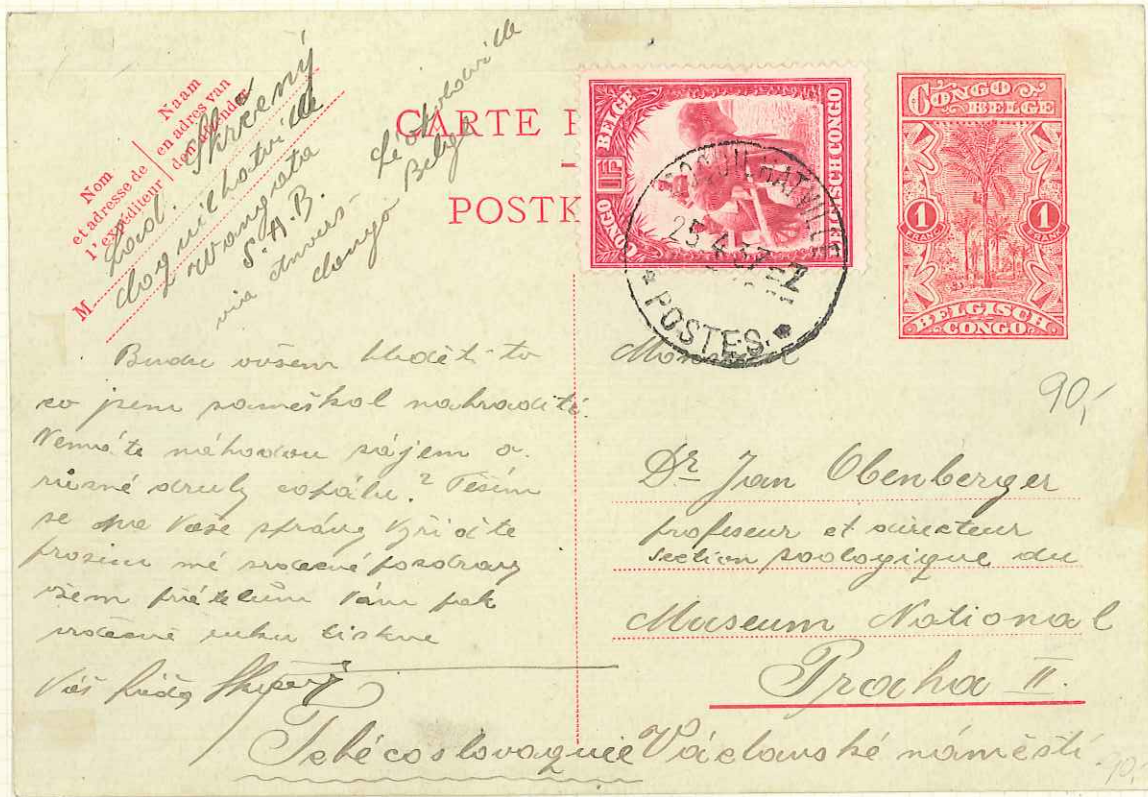 Nom
et adresse de
l'expéditeur
Naam
en adres van
den afzender
M
Lad. Skřečený
Coquilhatville
Wangata
S.A.B.
via Anvers - Léopoldville
Congo Belge
CARTE P
POSTK
CONGO BELGE
BELGISCH CONGO
1F
COQUILHATVILLE
25.4.37
POSTES
CONGO BELGE
1 FRANC
1 FRANK
BELGISCH CONGO
90,-
Budu ovšem hledět to
co jsem zameškal nahraditi.
Nemáte náhodou zájem o
různé druhy copálu? Těším
se na Vaše zprávy Vyřiďte
prosím mé srdečné pozdravy
všem přátelům Vám pak
srdečně ruku tiskne
Váš
Monsieur
Dr Jan Obenberger
professeur et directeur
section zoologique du
Museum National
Praha II.
Tchécoslovaquie Václavské náměstí
90,-